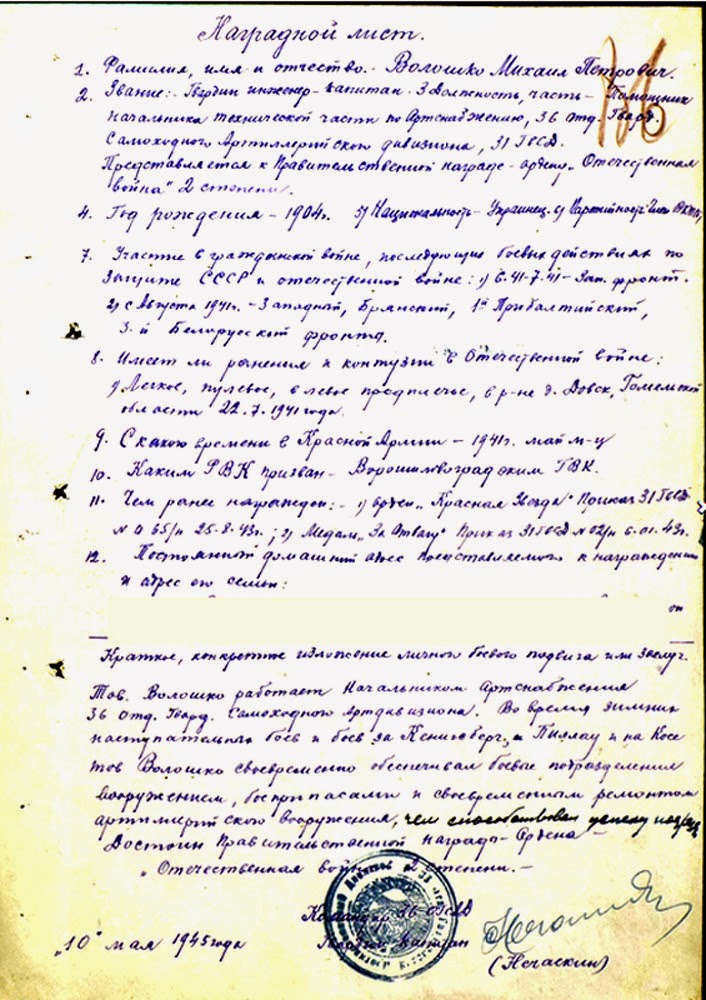 Наградной лист.
1. Фамилия, имя и отчество.- Волошко Михаил Петрович.
2. Звание:- Гвардии инженер-капитан. 3 Должность, часть- Помощник
начальника технической части по Артснабжению, 36 отд. Гвард.
Самоходного Артиллерийского дивизиона, 31 ГвСД
Представляется к Правительственной награде- ордену „Отечественная
война" 2 степени.
4. Год рождения - 1904г. 5) Национальность- Украинец. 6) Партийность
7. Участие в гражданской войне, последующих боевых действиях по
защите СССР и отечественной войне: 1) 6.41-7.41- Зап. фронт.
2) с Августа 1941г.- Западный, Брянский, 1й Прибалтийский,
3-й Белорусский фронта.
8. Имеет ли ранения и контузии в Отечественной войне:
1) Легкое, пулевое, в левое предплечье, в р-не д. Довск, Гомельской
области 22.7.1941 года.
9. С какого времени в Красной Армии - 1941г. май м-ц
10. Каким РВК призван- Ворошиловградским ГВК.
11. Чем ранее награжден:- 1) орден „Красная Звезда" Приказ 31 ГвСД
N 065/н 25-8-43г.; 2) Медаль „За Отвагу" Приказ 31 ГвСД N 02/н 6.01.43г.
12. Постоянный домашний адрес представляемого к награждению
и адрес его семьи:
Краткое, конкретное изложение личного боевого подвига или заслуг.
Тов. Волошко работает Начальником Артснабжения
36 отд. Гвард. Самоходного Артдивизиона. Во время зимних
наступательных боев и боев за Кенигсберг, и Пиллау и на Косе
тов Волошко своевременно обеспечивал боевые подразделения
вооружением, боеприпасами и своевременным ремонтом
артиллерийского вооружения, чем способствовал успеху
Достоин Правительственной награды- Ордена-
„Отечественная война" 2 степени.-
Командир 36 ОГСАД
„10" мая 1945 года Гвардии капитан
(Нечаскин)